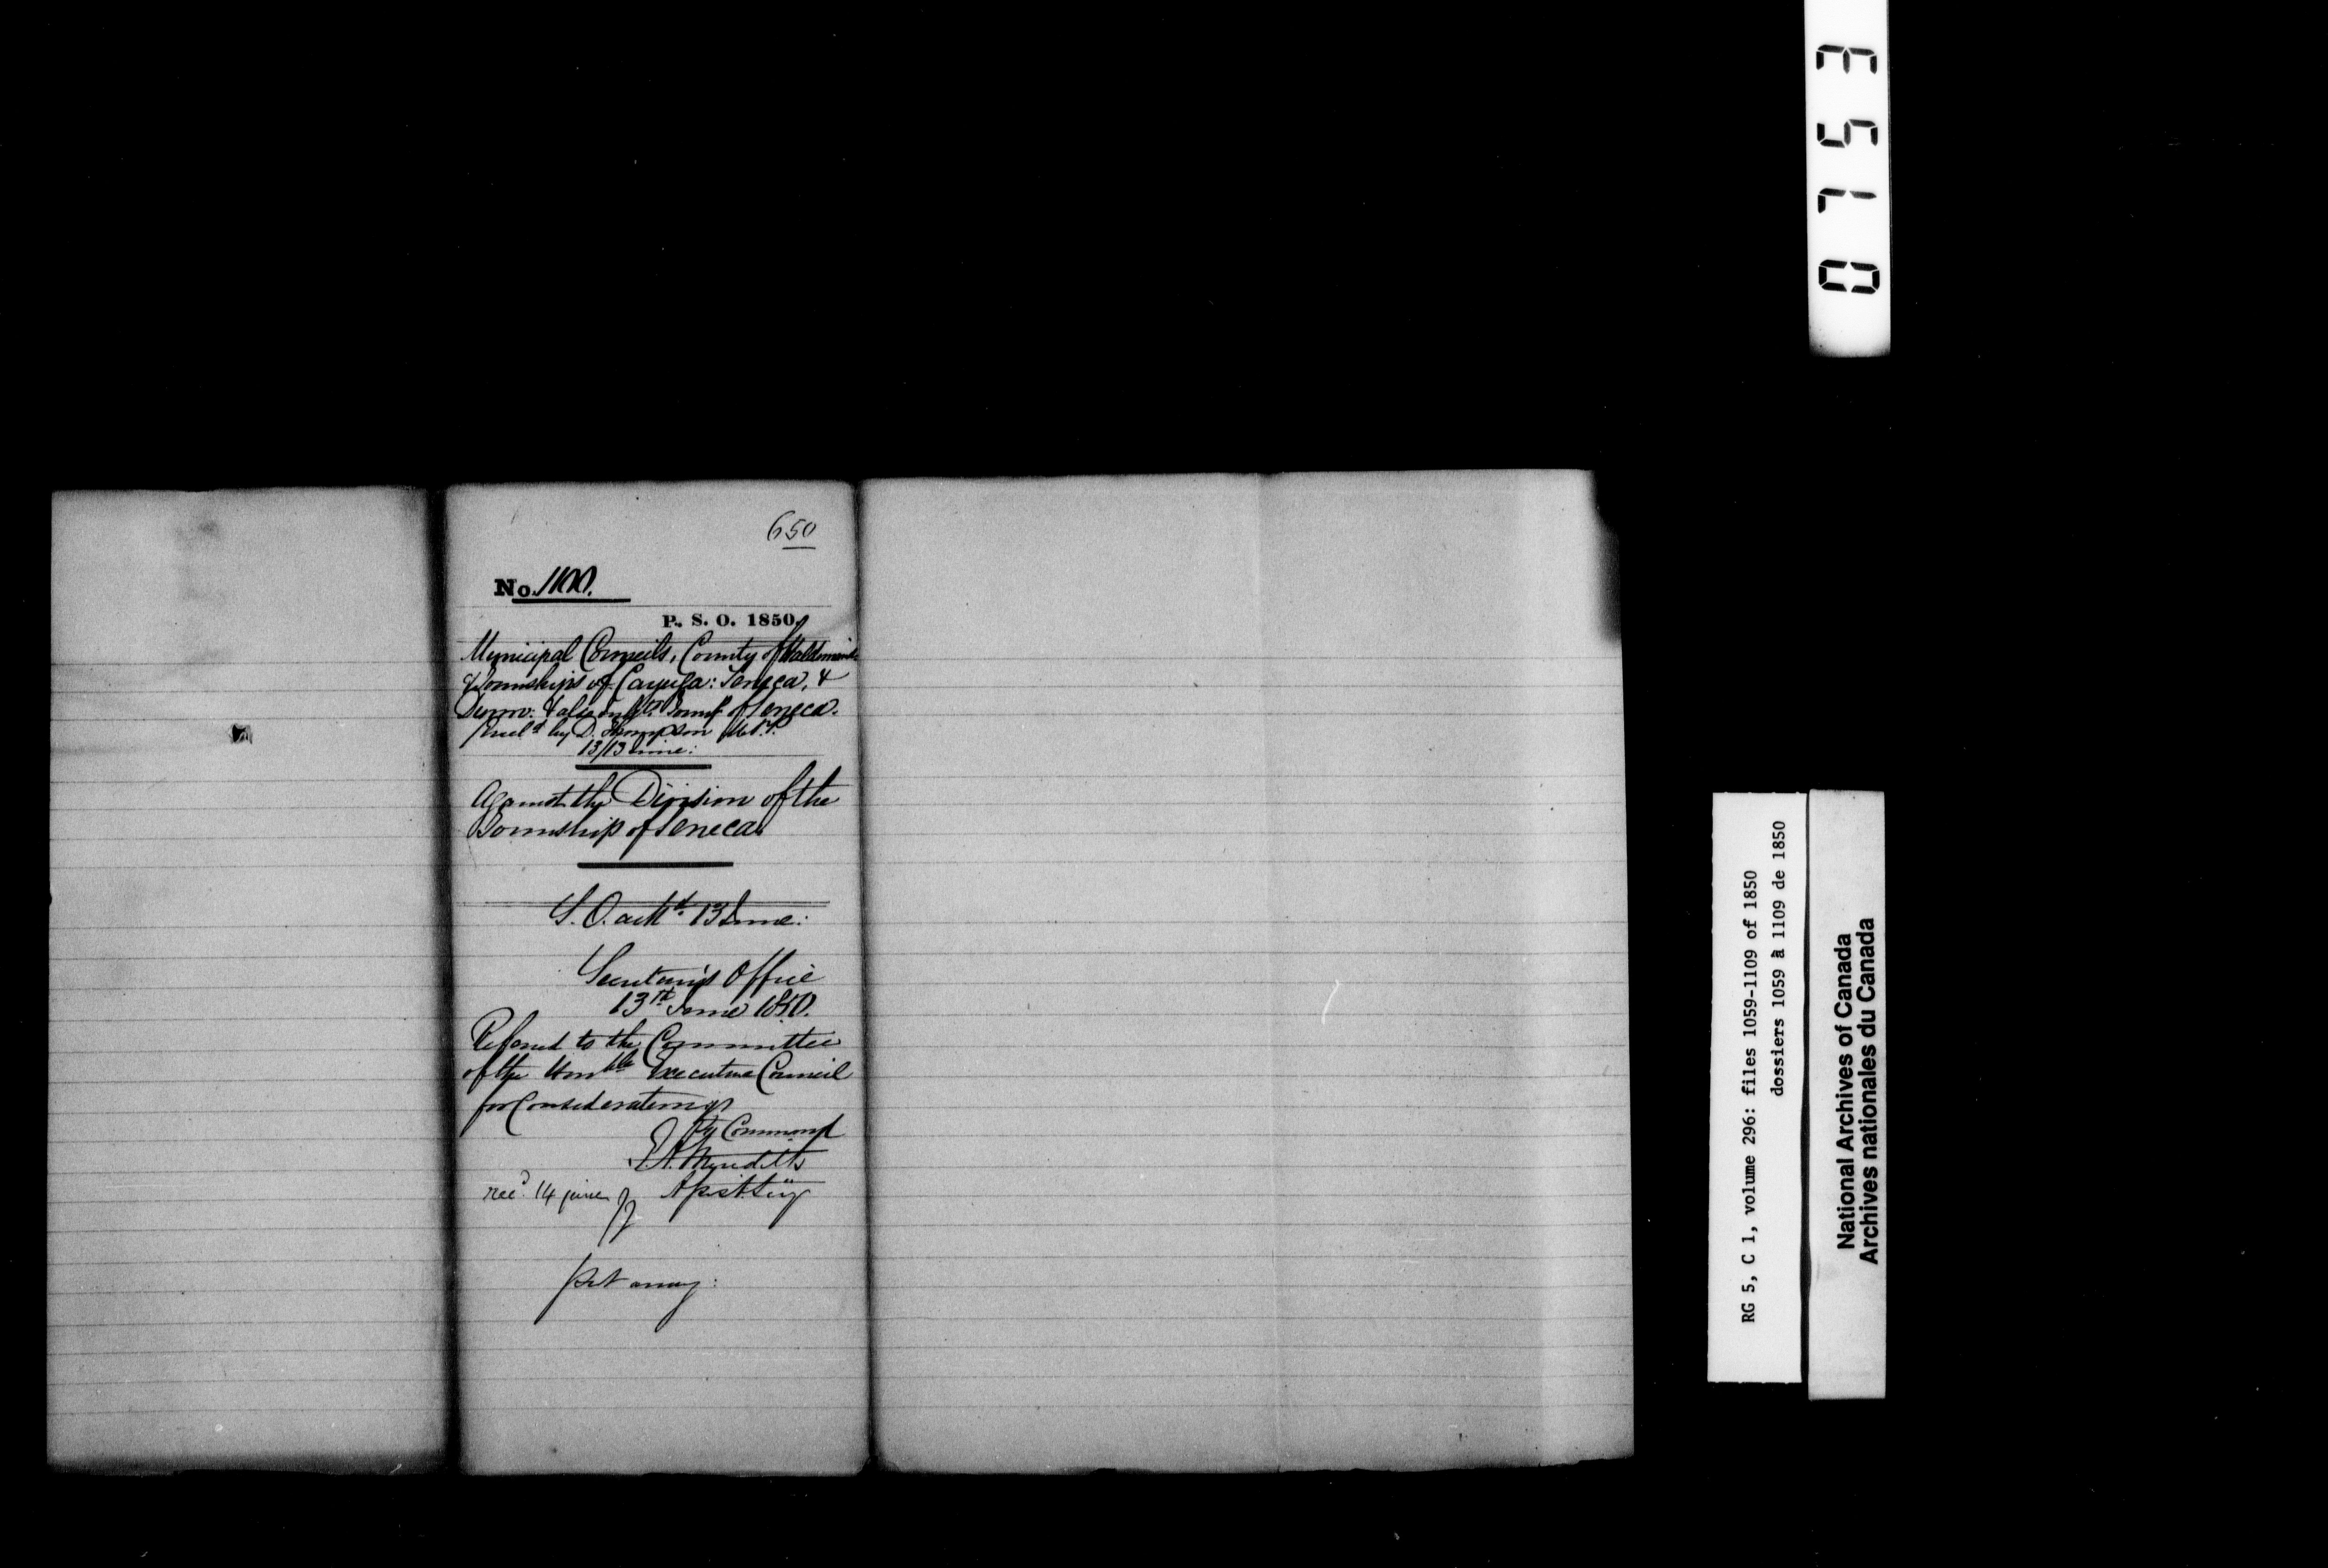 650
No. 1100.
P. S. O. 1850.
Municipal Councils, County of Haldimand
Townships of Cayuga: Seneca, &
Dunn: also Inhts. Townp. of Seneca.
Encld. by D. Thompson M.P.P.
13/13 June:
Against the Division of the
Township of Seneca
S.O. ackd. 13 June:
Secretary's Office
13th June 1850.
Referred to the Committee
of the Honble Executive Council
for Consideration
By Command
E.A. Meredith
Asst. Secy
recd. 14 june
put away:
0753
RG 5, C 1, volume 296: files 1059-1109 of 1850
dossiers 1059 à 1109 de 1850
National Archives of Canada
Archives nationales du Canada